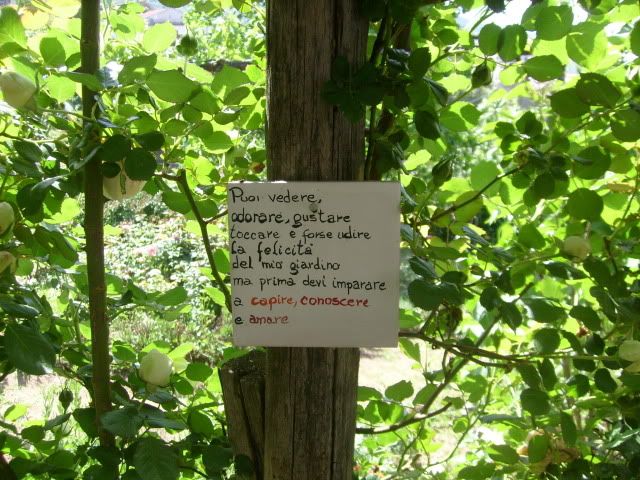 Puoi vedere,
odorare, gustare
toccare e forse udire
la felicità
del mio giardino
ma prima devi imparare
a capire, conoscere
e amare